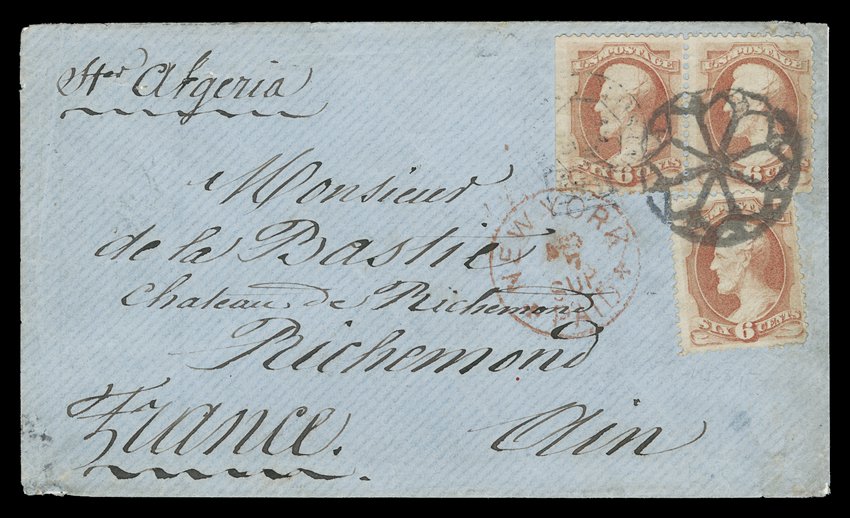 Str Algeria
U.S. POSTAGE
U.S. POSTAGE
SIX 6 CENTS
6 CENTS
Monsieur
de la Bastie
NEW YORK
SUP
PAID
Chateau de Richemond
Richemond
SIX 6 CENTS
France. Ain